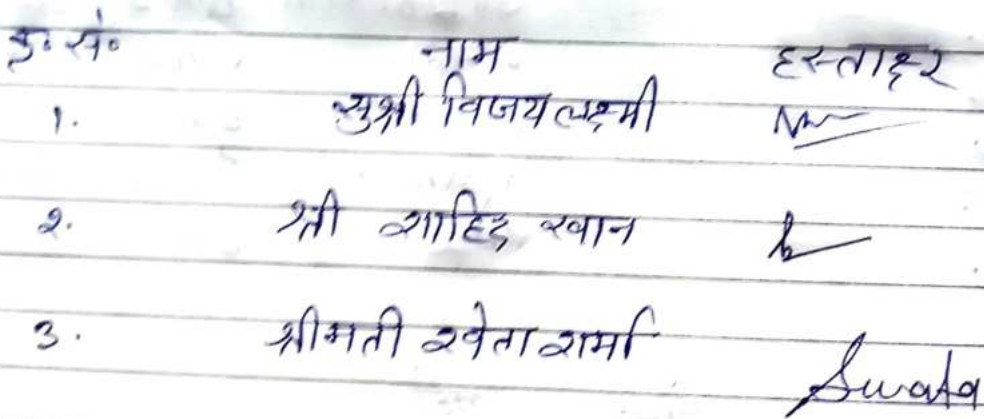 क्र. सं. नाम हस्ताक्षर
1. सुश्री विजयलक्ष्मी
2. श्री शाहिद खान
3. श्रीमती श्वेता शर्मा Swata